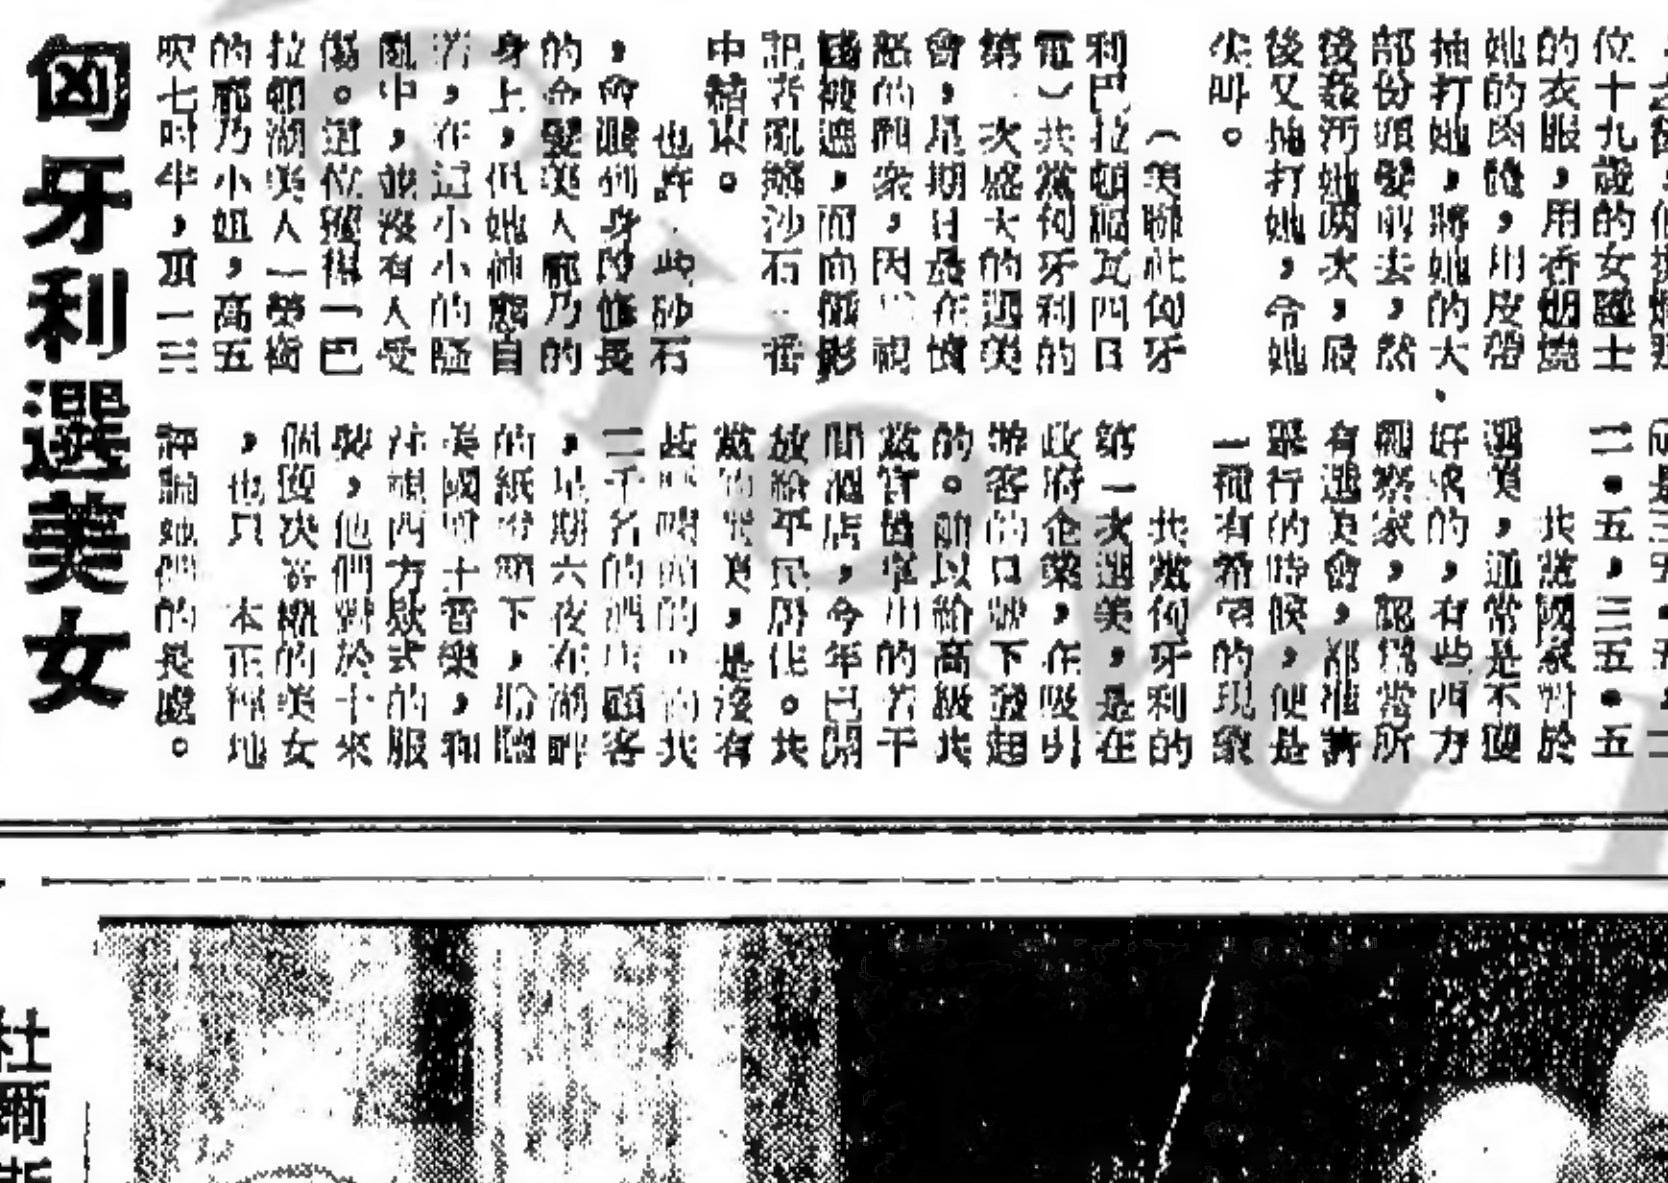 匈牙利選美女
位十九歲的女護士
的衣服，用香烟燒
她的肉體，用皮帶
抽打她，將她的大
部份頭髮剪去，然
後姦汚她兩次，最
後又抽打她，令她
尖叫。
（美聯社匈牙
利巴拉頓福瓦四日
電）共黨匈牙利的
第一次盛大的選美
會，星期日是在憤
怒的觀衆，因爲視
綫被遮，而向攝影
記者亂擲沙石一番
中結束。
也許，此砂石
，會跟到身段修長
的金髮美人龐乃的
身上，但她神態自
若，在這小小的騷
亂中，並沒有人受
傷。這位獲得一巴
拉頓湖美人一榮銜
的龐乃小姐，高五
吹七吋半，重一三
二．五，三五．五
共黨國家對於
選美，通常是不
好 的，有些西方
觀察家，認爲當所
有選美會，都准許
舉行的時候，便是
一種有希望的現象
共黨匈牙利的
第一次選美，是在
政府企業，在吸引
遊客的口號下發起
的。前以給高級共
黨官員享用的若干
間酒店，今年已開
放給平民居住。共
黨的選美，是沒有
甚麼 頭的 共
二千名的酒店顧客
，星期六夜在湖畔
的紙燈籠下，聆聽
美國爵士音樂，和
注視西方款式的服
裝，他們對於十來
個 決 的美女
，也只 本正經地
評論她們的長處。
杜爾斯